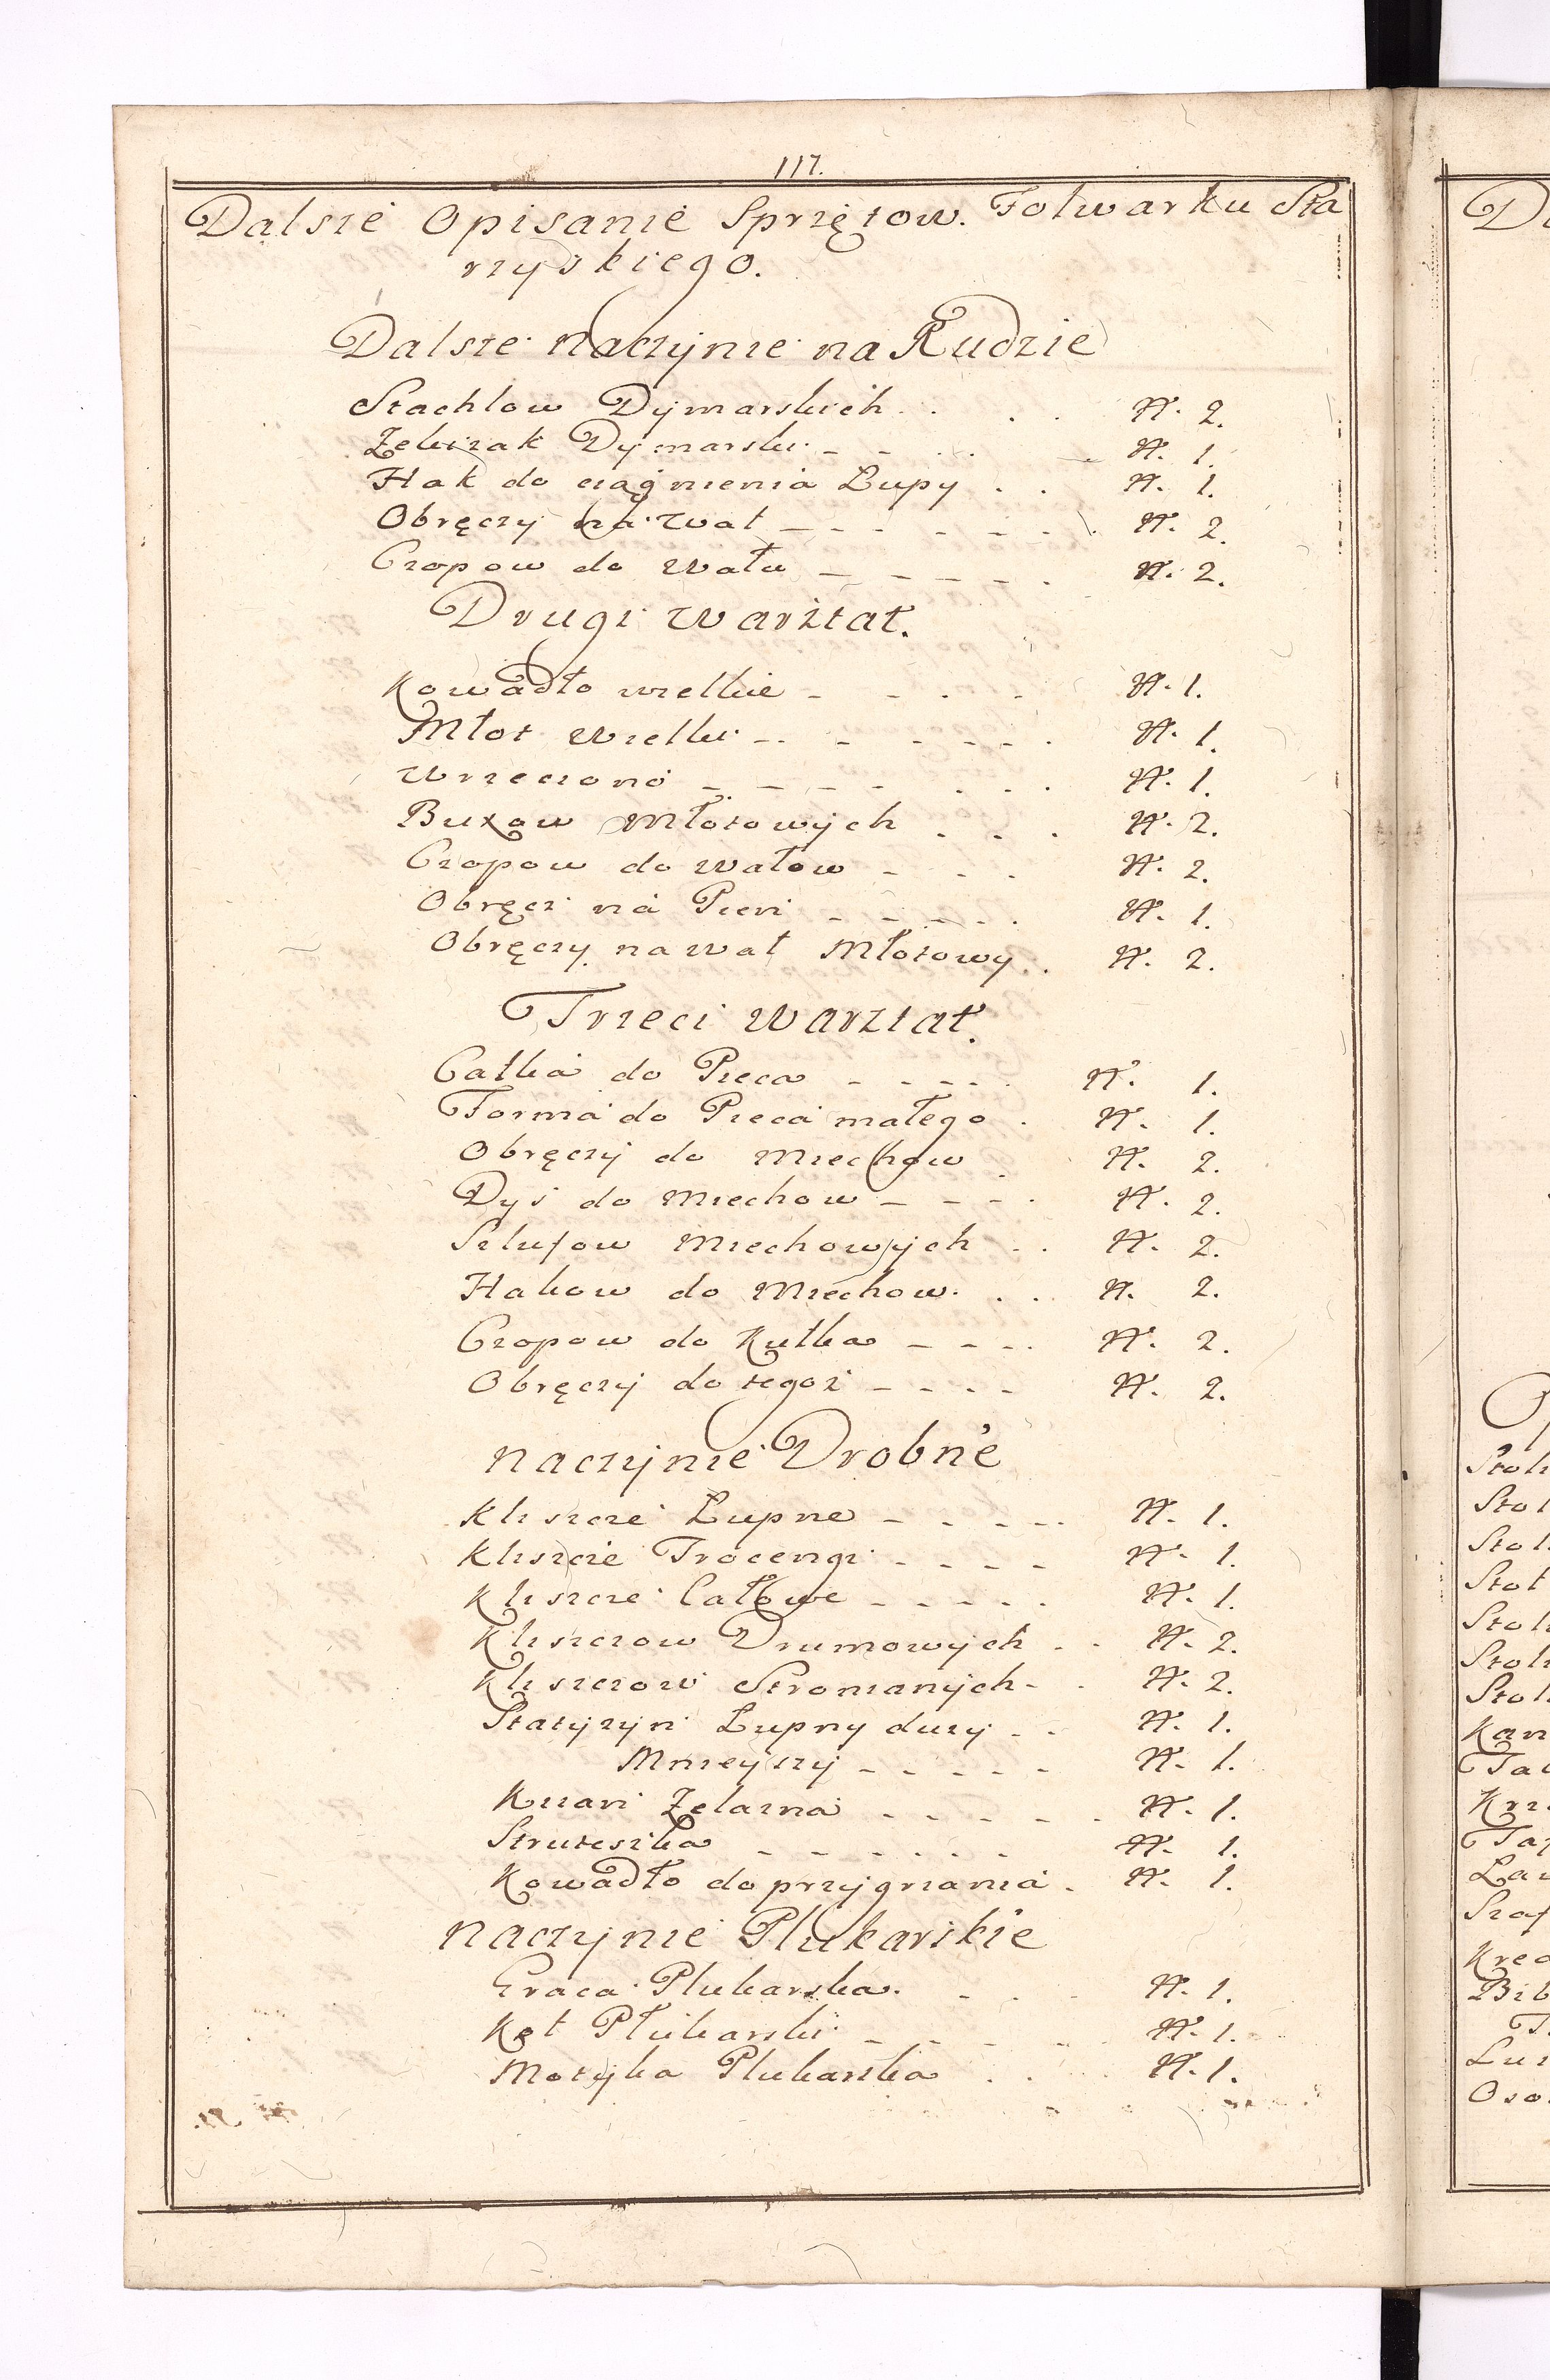 117.
Dalsze Opisanie Sprzętow. Folwarku Sta
rzyskiego.
Dalsze naczynie na Rudzie
Stachlow Dymarskich . . . N. 2.
Zelizak Dymarski - - . . N. 1.
Hak do ciągnienia Łupy . . N. 1.
Obręczy na wał - - - - - - . N. 2.
Czopow do wału - - - - - . N. 2.
Drugi warztat.
Kowadło wielkie - - . - N. 1.
Młot wielki - - - - - - . N. 1.
wrzeciono - - - - . . . N. 1.
Buxow Młotowych . . . N. 2.
Czopow do wałow - - . N. 2.
Obręcz na Pień - - - - . N. 1.
Obręczy na wał Młotowy . N. 2.
Trzeci warztat.
Całka do Pieca - - - - . N. 1.
Forma do Pieca małego . N. 1.
Obręczy do Miechow . N. 2.
Dyś do Miechow - - - . N. 2.
Szlufow Miechowych . . N. 2.
Hakow do Miechow . . . N. 2.
Czopow do Kułka - - - . N. 2.
Obręczy do tegoż - - - - N. 2.
naczynie Drobne
Kliszcze Łupne - - - - . N. 1.
Kliszcze Trocengi - - - - N. 1.
Kliszcze Całowe - - - - . N. 1.
Kliszczow Drumowych . . N. 2.
Kliszczow Stronianych - . N. 2.
Statyszyn Łupny duży . . N. 1.
Mnieyszy - - - - - N. 1.
Kuzań Zelazna - - - - - . N. 1.
Struteszka - - - - - - N. 1.
Kowadło do przygrzania . N. 1.
naczynie Plukarskie
Graca Plukarska . - . . N. 1.
Kąt Płukarski - - - - . N. 1.
Motyka Plukarska . . . N. 1.